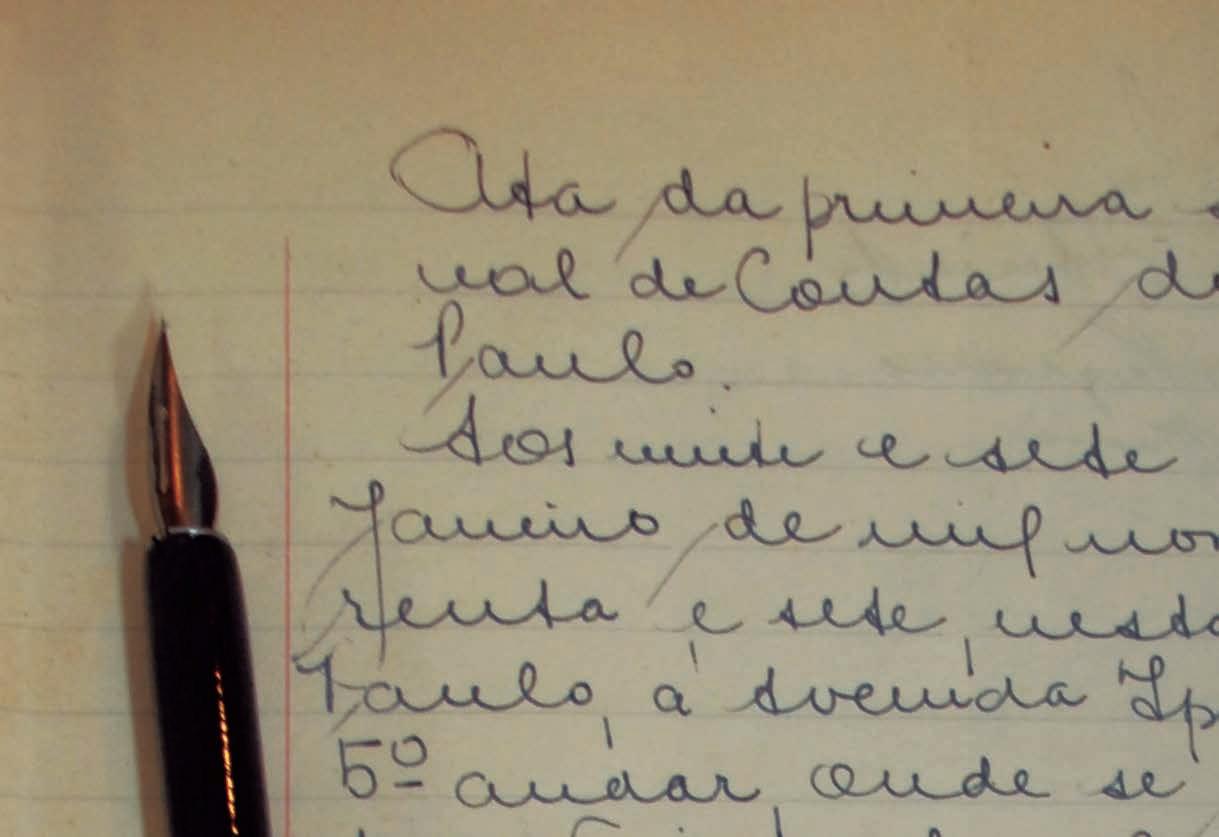 Ata da primeira
nal de Contas do
Paulo.
Aos vinte e sete
Janeiro de mil nov
renta e sete, nesta
Paulo, à Avenida Ip
5º andar, onde se